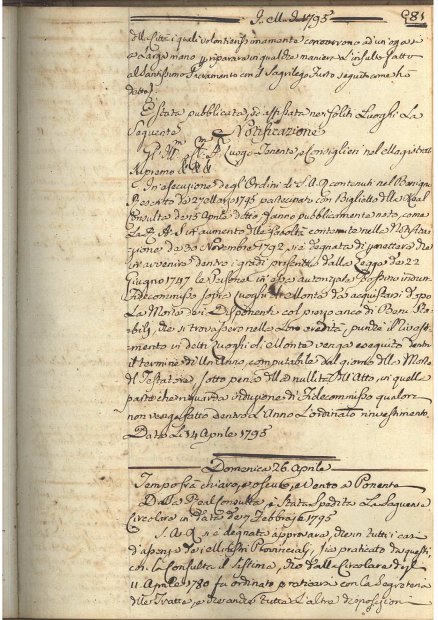 1795
981
della Città i quali volontierissimamente concorrono ad un' oga
a larga mano riparare in qualche maniera l'insulto fatto
al Santissimo Sacramento con il Sagrilego Furto seguito come ho
detto
È stata pubblicata, ed affissata nei soliti Luoghi La
Seguente Notificazione
Luogo Tenente, e Consiglieri nel Magistrato
Supremo
In esecuzione degli Ordini di S. A. R. contenuti nel Benigno
Rescritto de 27 Marzo 1795 partecipato con Biglietto della Real
Consulta de 15 Aprile detto fanno pubblicamente noto, come
La R. A. S. in aumento delle facoltà contenute nella Notificazione
de 30 Novembre 1792 si è degnata di permettere che
dentro i gradi prescritti dalla Legge de 22
Giugno 1747 le Persone in essa autorizzate possino indurre
Fidecommisso sopra Luoghi di Monte da acquistarsi dopo
La Morte dei Disponente col prezzo anco di Beni
che si trovassero nella Loro eredità, purchè il rinvestimento
in detti Luoghi di Monte venga eseguito dentro
il termine di Un Anno, computabile dal giorno della Morte
del Testatore, sotto pena della nullità dell'Atto, in quella
parte che riguarda induzione di Fidecommisso qualora
non venga fatto dentro L'Anno L'ordinato rinvestimento.
Dato Li 14 Aprile 1795
Domenica 26. Aprile
Tempo fra chiaro, e oscuro, e Vento a Ponente
Dalla Real Consulta è stata spedita La Seguente
Circolare in data de 7 Febbraio 1795
S. A. R. si è degnata approvare, che in tutti i casi
dei Ministri Provinciali, sia praticato da questi
con la Consulta il sistema, che dalla Circolare degli
11 Aprile 1780 fu ordinato praticarsi con la Segreteria
delle Tratte, e tutte L'altre disposizioni